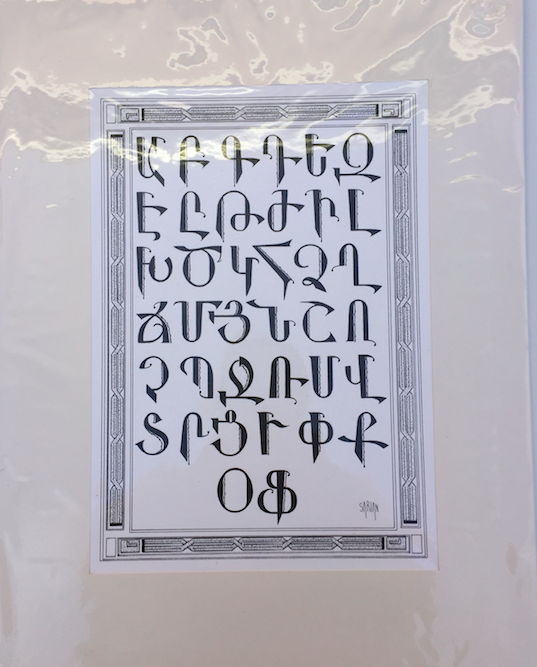 Ա Բ Գ Դ Ե Զ
Է Ը Թ Ժ Ի Լ
Խ Ծ Կ Հ Ձ Ղ
Ճ Մ Յ Ն Շ Ո
Չ Պ Ջ Ռ Ս Վ
Տ Ր Ց Ւ Փ Ք
Օ Ֆ
SARIAN